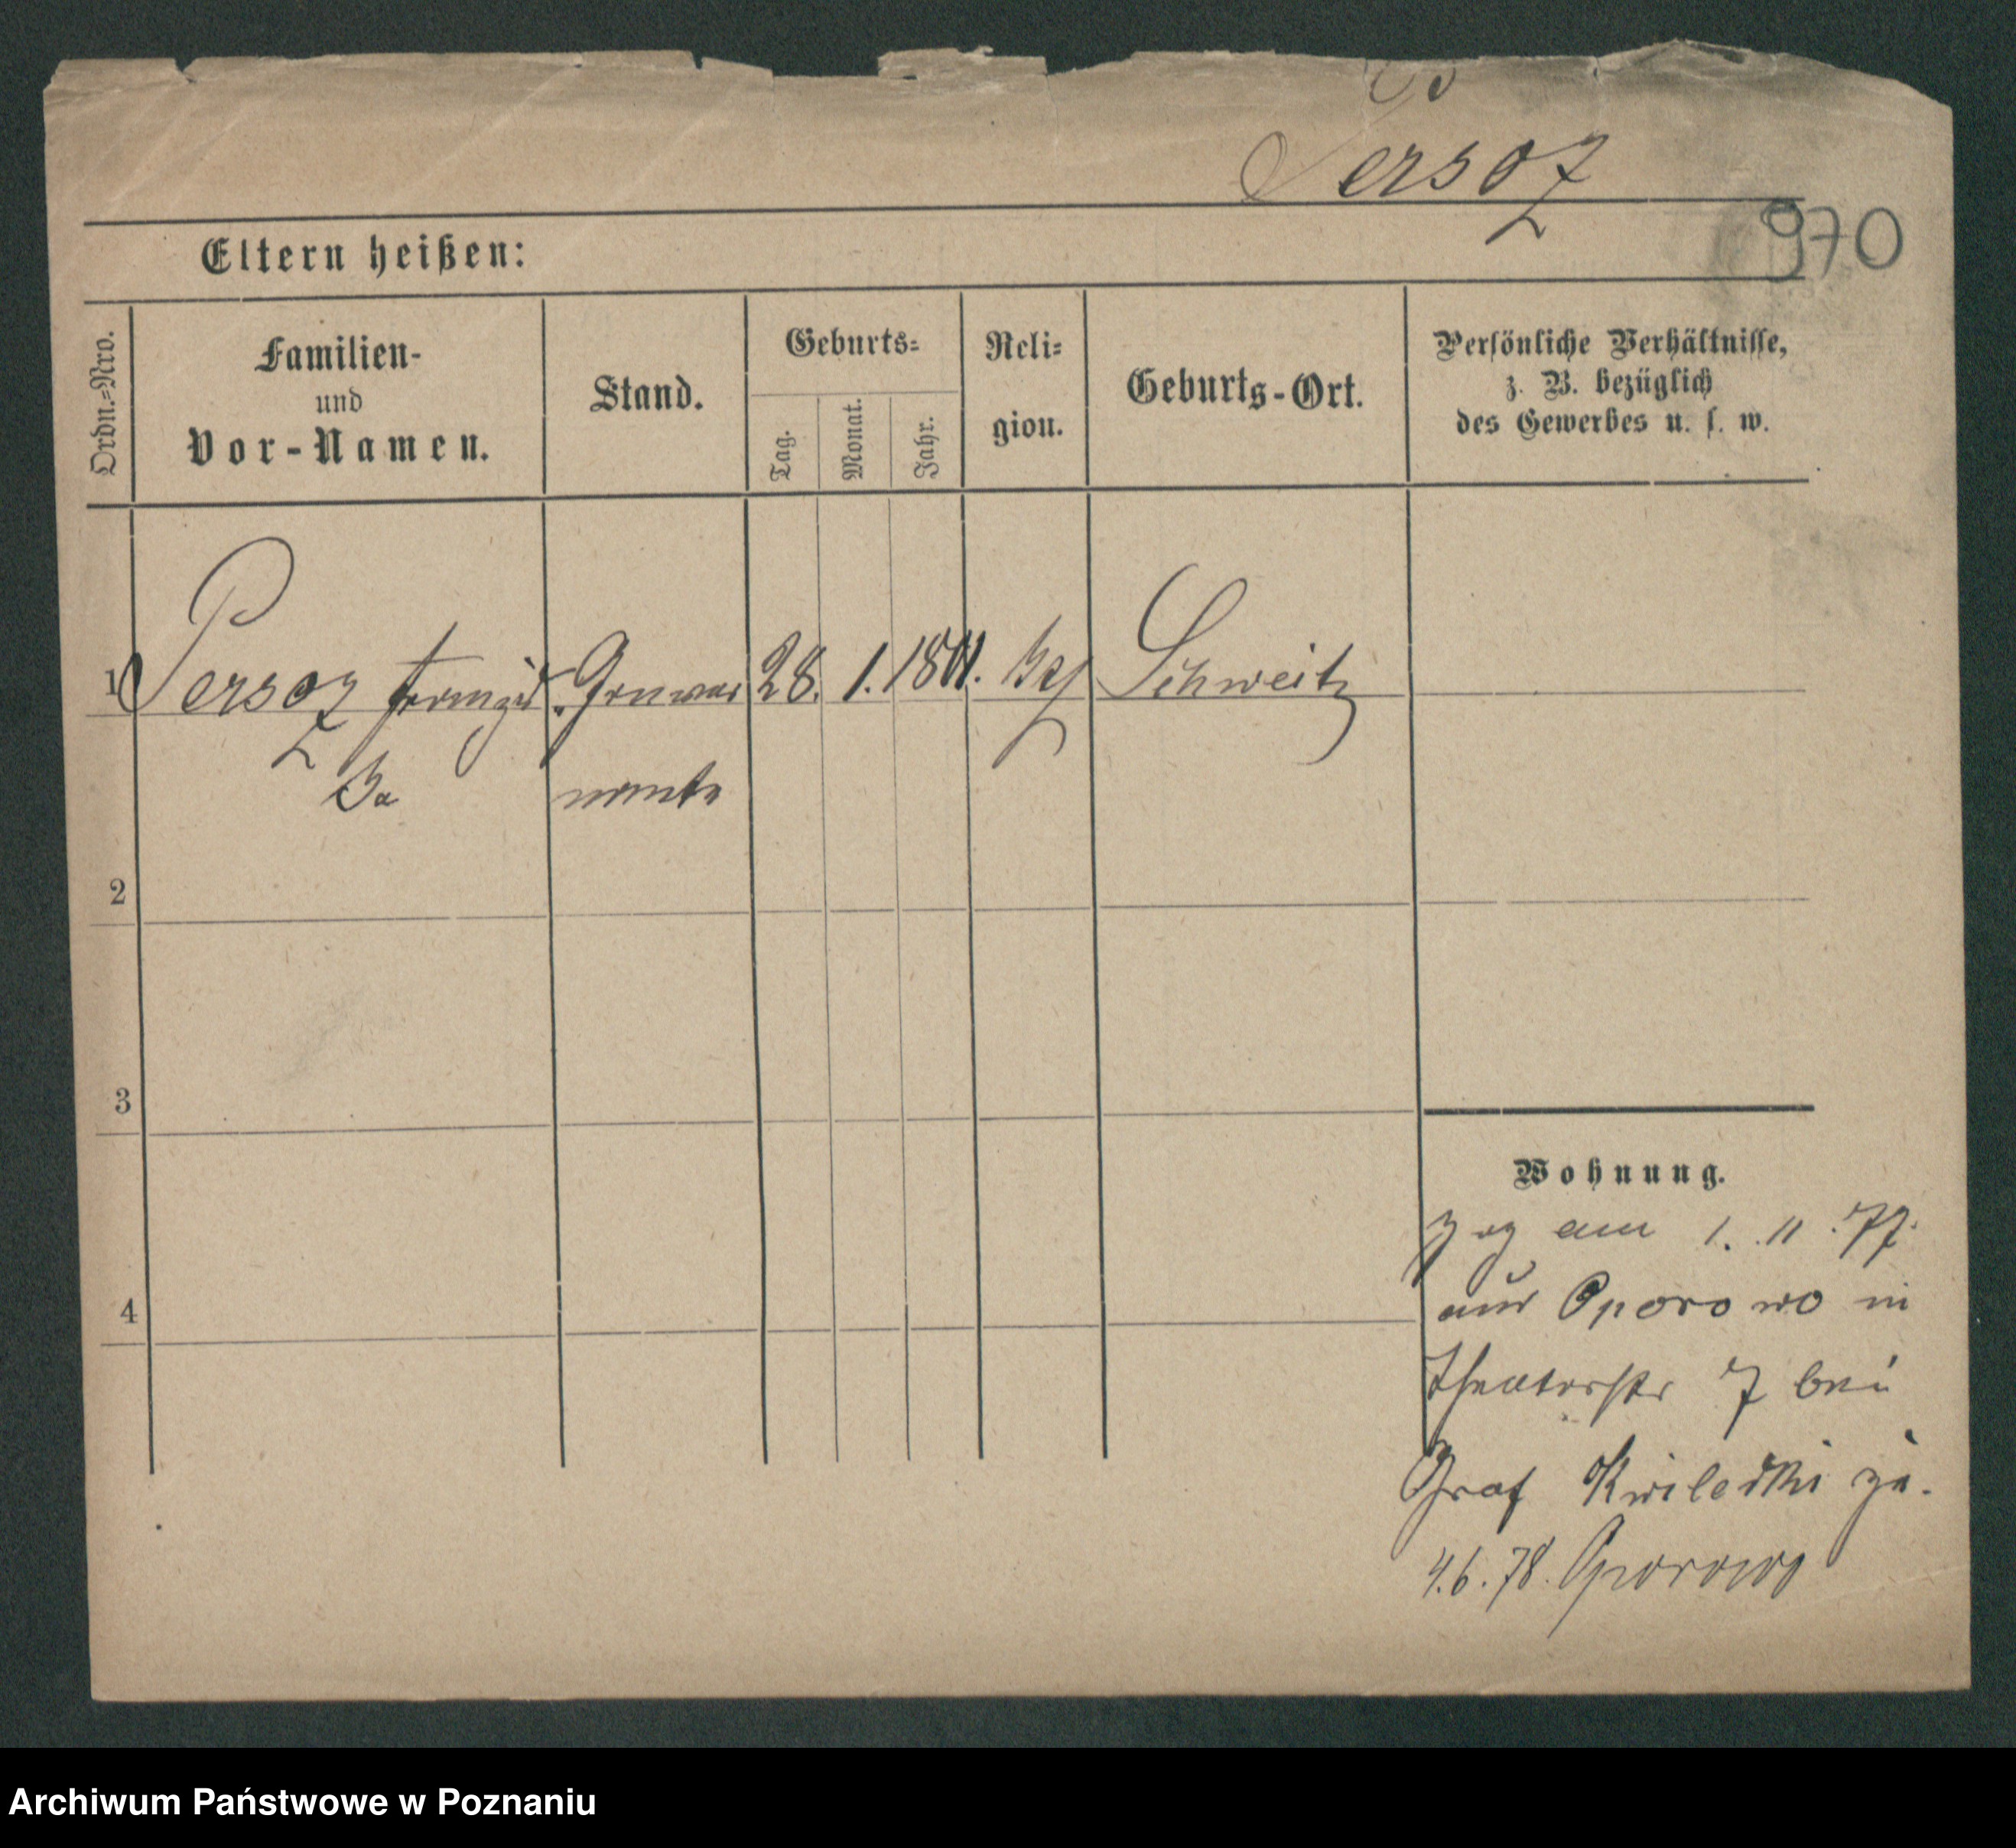 Persoz
970
Eltern heißen:
Ordn.=Nro.
Familien-
und
Vor-Namen.
Stand.
Geburts=
Tag.
Monat.
Jahr.
Reli=
gion.
Geburts-Ort.
Persönliche Verhältnisse,
z. B. bezüglich
des Gewerbes u. s. w.
1 Persoz Franzis Gouver 28. 1. Schweitz
ka nante
2
3
4
Wohnung.
zog am 1. 11. 77.
aus Oporowo in
Theaterstr 7 bei
Graf Kwilecki zu.
4.6.78. Oporowo
Archiwum Państwowe w Poznaniu